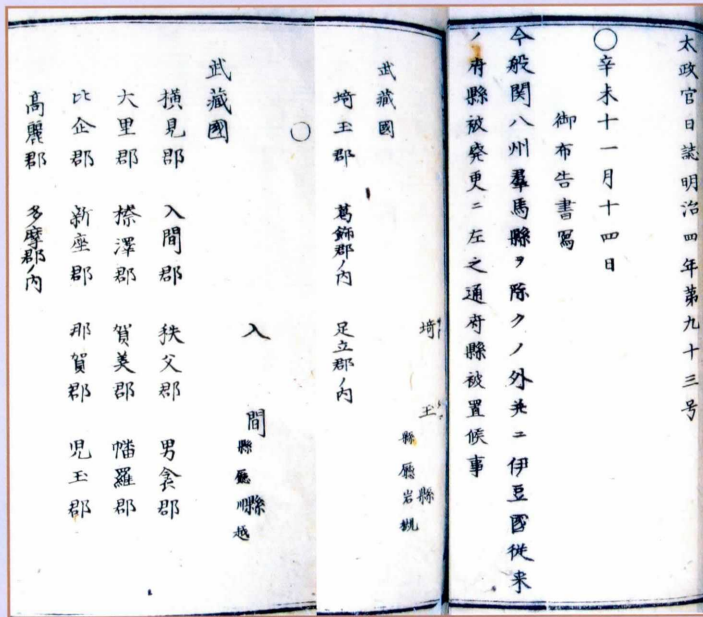 太政官日誌明治四年第九十三号
〇辛未十一月十四日
御布告書寫
今般関八州羣馬縣ヲ除クノ外并ニ伊豆國従来
ノ府縣被廃更ニ左之通府縣被置候事
埼玉縣
縣廳岩槻
武藏國
埼玉郡 葛飾郡ノ内 足立郡ノ内
〇
入間縣
縣廳川越
武藏國
横見郡 入間郡 秩父郡 男衾郡
大里郡 榛澤郡 賀美郡 幡羅郡
比企郡 新座郡 那賀郡 児玉郡
高麗郡 多摩郡ノ内